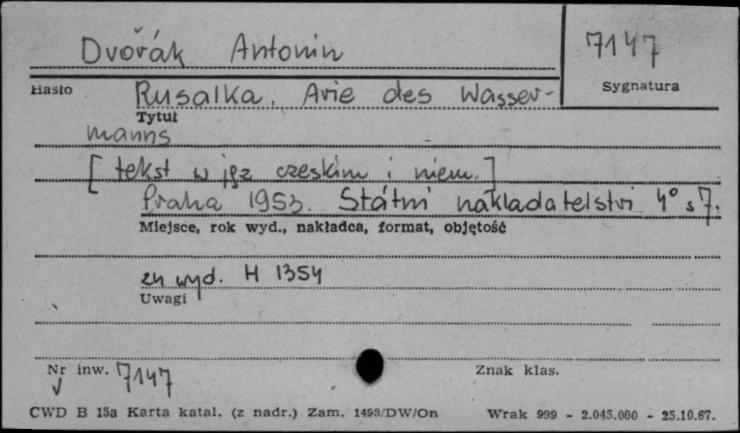 Dvořák Antonin
7147
Hasło
Sygnatura
Rusalka. Arie des Wasser-
Tytuł
manns
[tekst w jęz czeskim i niem.]
Praha 1953. Státní nakladatelstvi 4° s 7.
Miejsce, rok wyd., nakładca, format, objętość
zn wyd. H 1354
Uwagi
Nr inw. 7147
Znak klas.
CWD B 15a Karta katal. (z nadr.) Zam. 1498/DW/On
Wrak 999 - 2.045.000 - 25.10.67.